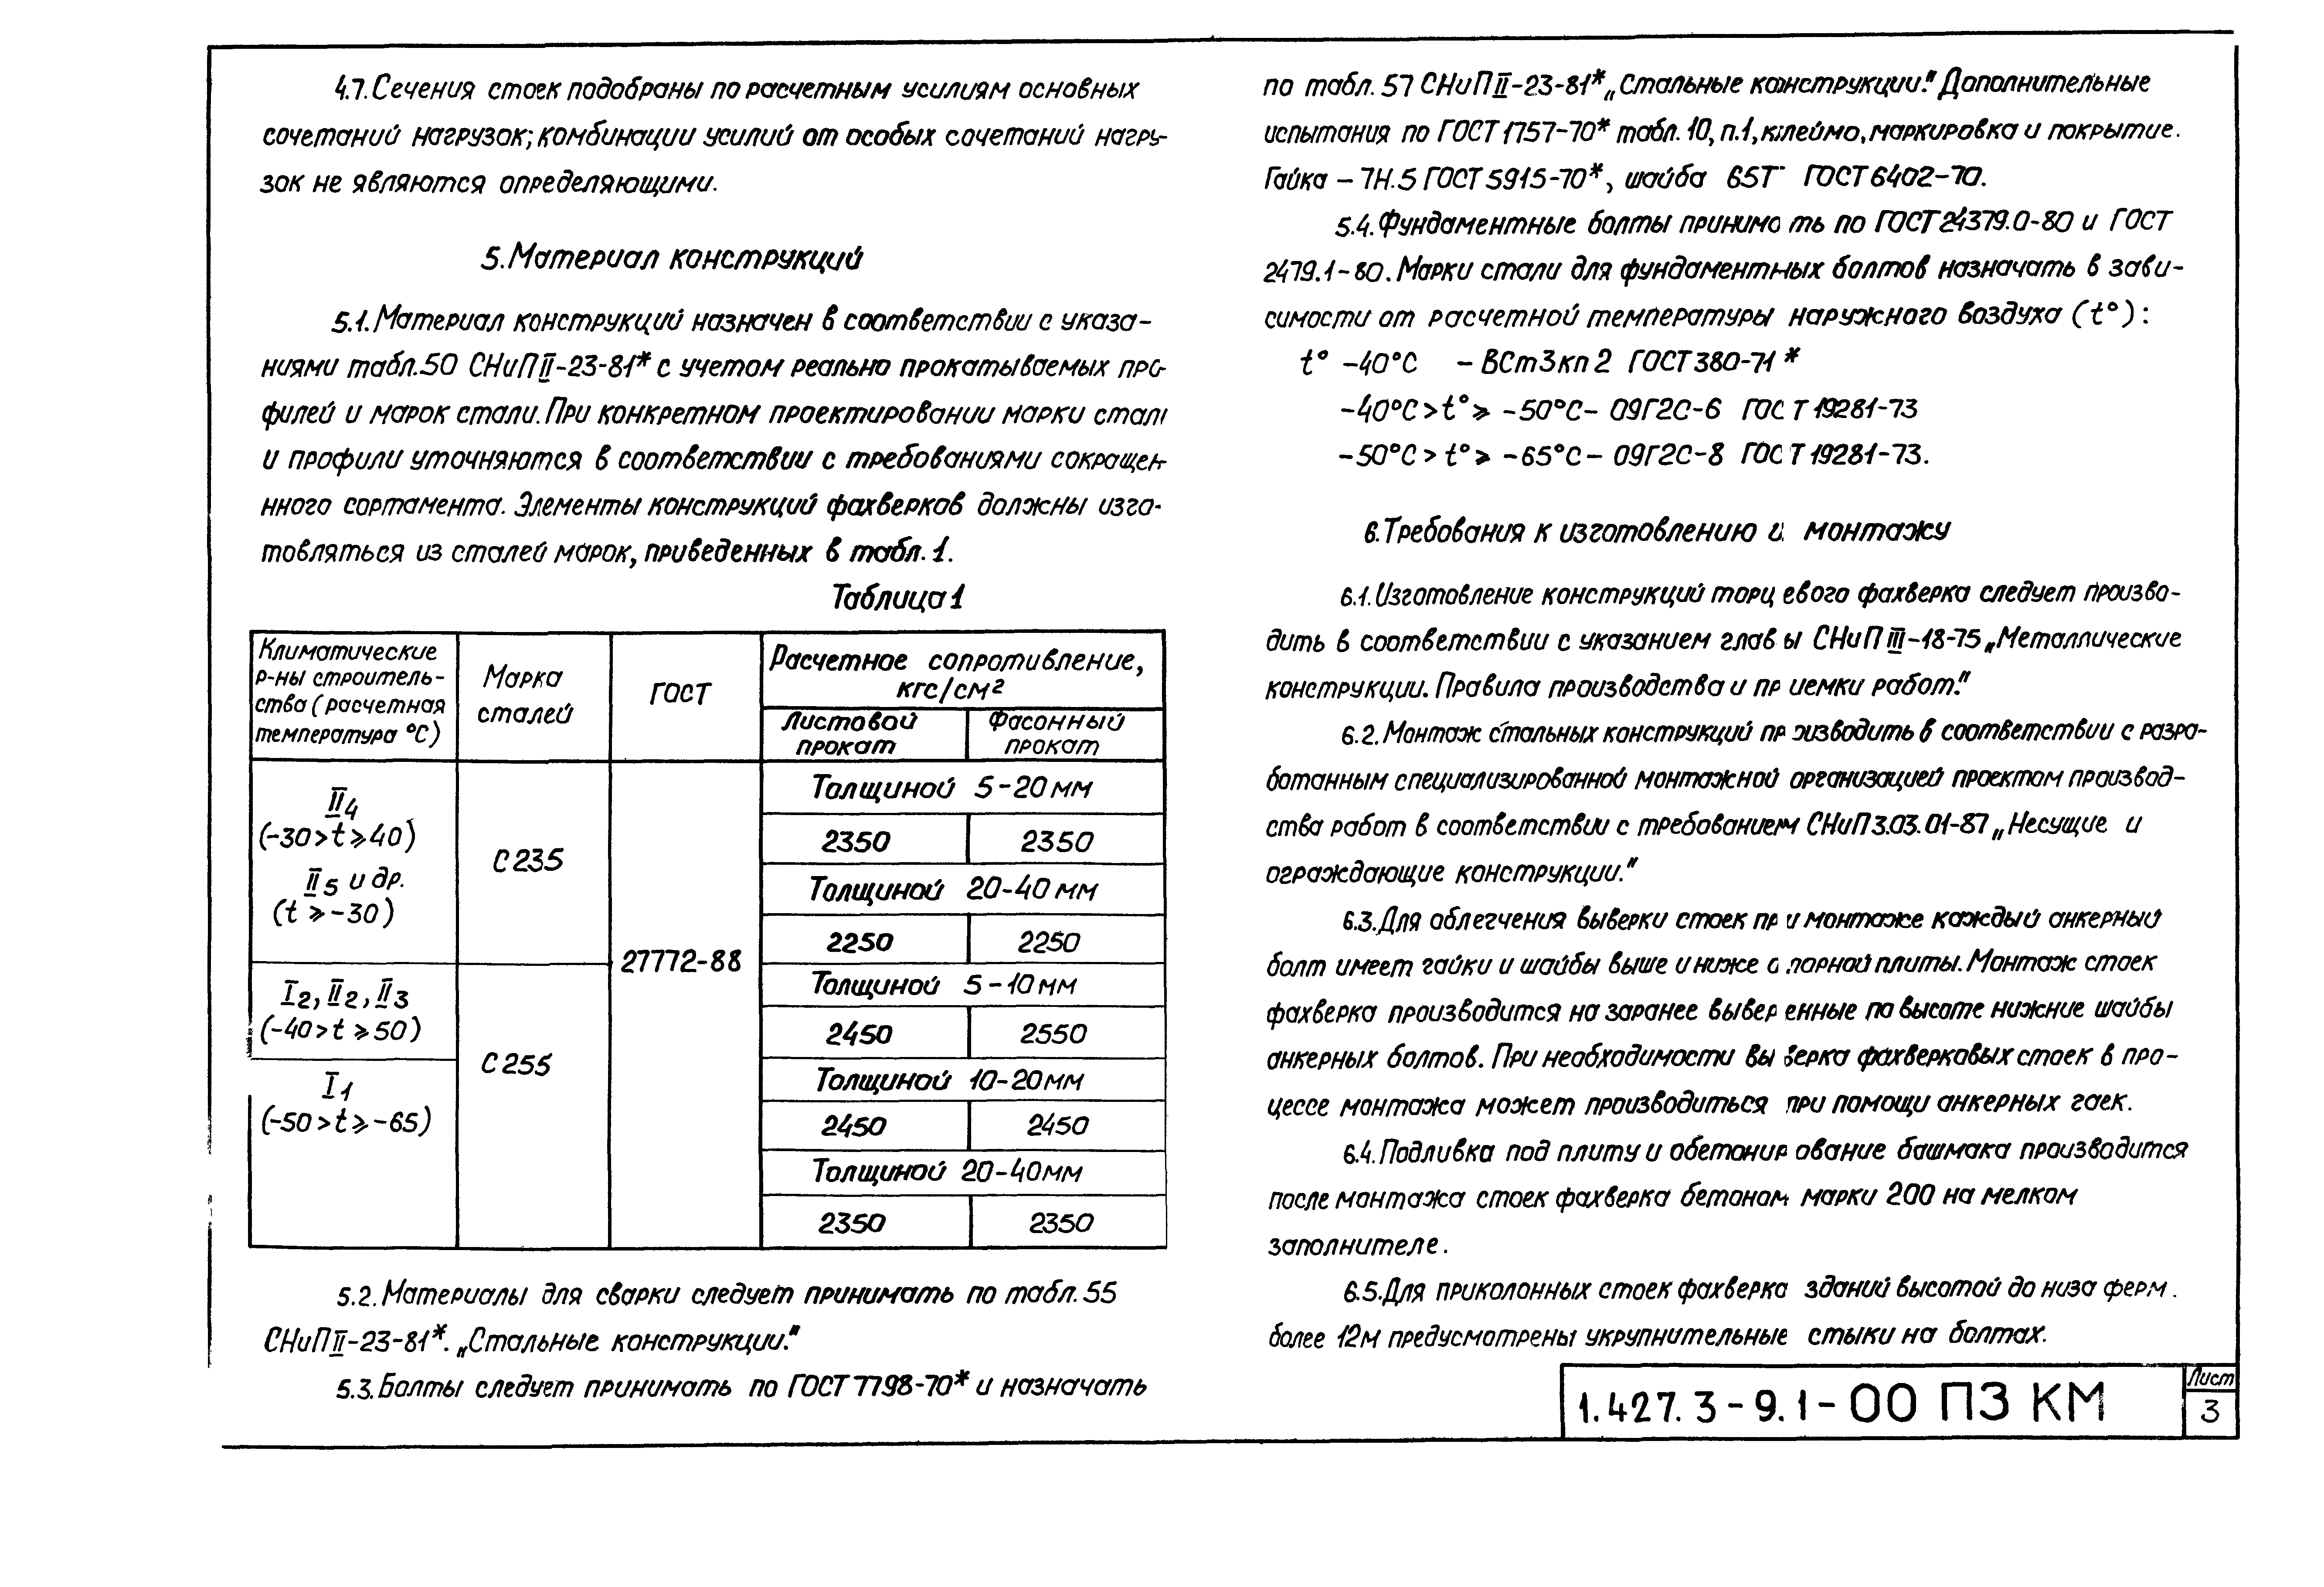 4.7. Сечения стоек подобраны по расчетным усилиям основных
сочетаний нагрузок; комбинации усилий от особых сочетаний нагру-
зок не являются определяющими.
5. Материал конструкций
5.1. Материал конструкций назначен в соответствии с указа-
ниями табл. 50 СНиП II-23-81* с учетом реально прокатываемых про-
филей и марок стали. При конкретном проектировании марки стали
и профили уточняются в соответствии с требованиями сокращен-
ного сортамента. Элементы конструкций фахверков должны изго-
товляться из сталей марок, приведенных в табл. 1.
Таблица 1
Климатические
р-ны строитель-
ства (расчетная
температура °С)
Марка
сталей
ГОСТ
Расчетное сопротивление,
кгс/см²
Листовой
прокат
Фасонный
прокат
II4
(-30>t⩾40)
II5 и др.
(t ⩾-30)
С 235
27772-88
Толщиной 5-20 мм
2350 2350
Толщиной 20-40 мм
2250 2250
I2, II2, II3
(-40>t⩾50)
I1
(-50>t⩾-65)
С 255
Толщиной 5-10 мм
2450 2550
Толщиной 10-20 мм
2450 2450
Толщиной 20-40 мм
2350 2350
5.2. Материалы для сварки следует принимать по табл. 55
СНиП II-23-81*. „Стальные конструкции."
5.3. Болты следует принимать по ГОСТ 7798-70* и назначать
по табл. 57 СНиП II-23-81* „Стальные конструкции." Дополнительные
испытания по ГОСТ 1757-70* табл. 10, п.1, клеймо, маркировка и покрытие.
Гайка – 7Н.5 ГОСТ 5915-70*, шайба 65Г ГОСТ 6402-70.
5.4. Фундаментные болты принимать по ГОСТ 24379.0-80 и ГОСТ
2479.1-80. Марки стали для фундаментных болтов назначать в зави-
симости от расчетной температуры наружного воздуха (t°):
t° -40°С – ВСт3кп2 ГОСТ 380-71*
-40°С>t°⩾ -50°С– 09Г2С-6 ГОСТ 19281-73
-50°С>t°⩾ -65°С– 09Г2С-8 ГОСТ 19281-73.
6. Требования к изготовлению и монтажу
6.1. Изготовление конструкций торцевого фахверка следует произво-
дить в соответствии с указанием главы СНиП III-18-75 „Металлические
конструкции. Правила производства и приемки работ."
6.2. Монтаж стальных конструкций производить в соответствии с разра-
ботанным специализированной монтажной организацией проектом производ-
ства работ в соответствии с требованием СНиП 3.03.01-87 „Несущие и
ограждающие конструкции."
6.3. Для облегчения выверки стоек при монтаже каждый анкерный
болт имеет гайки и шайбы выше и ниже опорной плиты. Монтаж стоек
фахверка производится на заранее выверенные по высоте нижние шайбы
анкерных болтов. При необходимости выверка фахверковых стоек в про-
цессе монтажа может производиться при помощи анкерных гаек.
6.4. Подливка под плиту и обетонирование башмака производится
после монтажа стоек фахверка бетоном марки 200 на мелком
заполнителе.
6.5. Для приколонных стоек фахверка зданий высотой до низа ферм
более 12м предусмотрены укрупнительные стыки на болтах.
1.427.3-9.1-00 ПЗ КМ
Лист
3